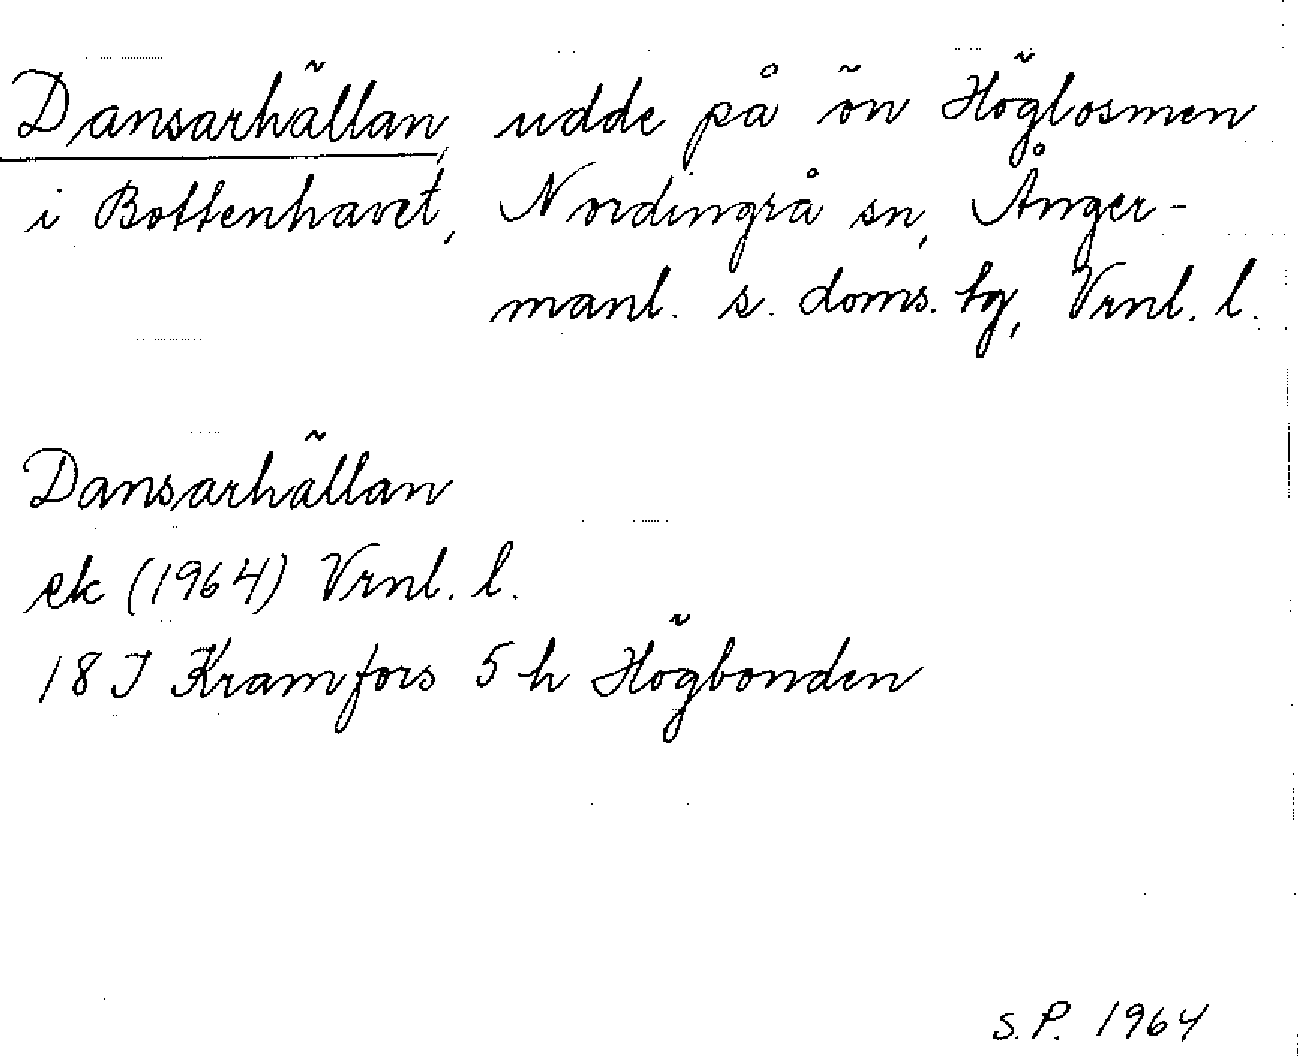 Dansarhällan, udde på ön Höglosmen
i Bottenhavet, Nordingrå sn, Ånger-
manl. s. doms. tg, Vrnl. l.
Dansarhällan
ek (1964) Vrnl. l.
18 J Kramfors 5 h Högbonden
S.P. 1964